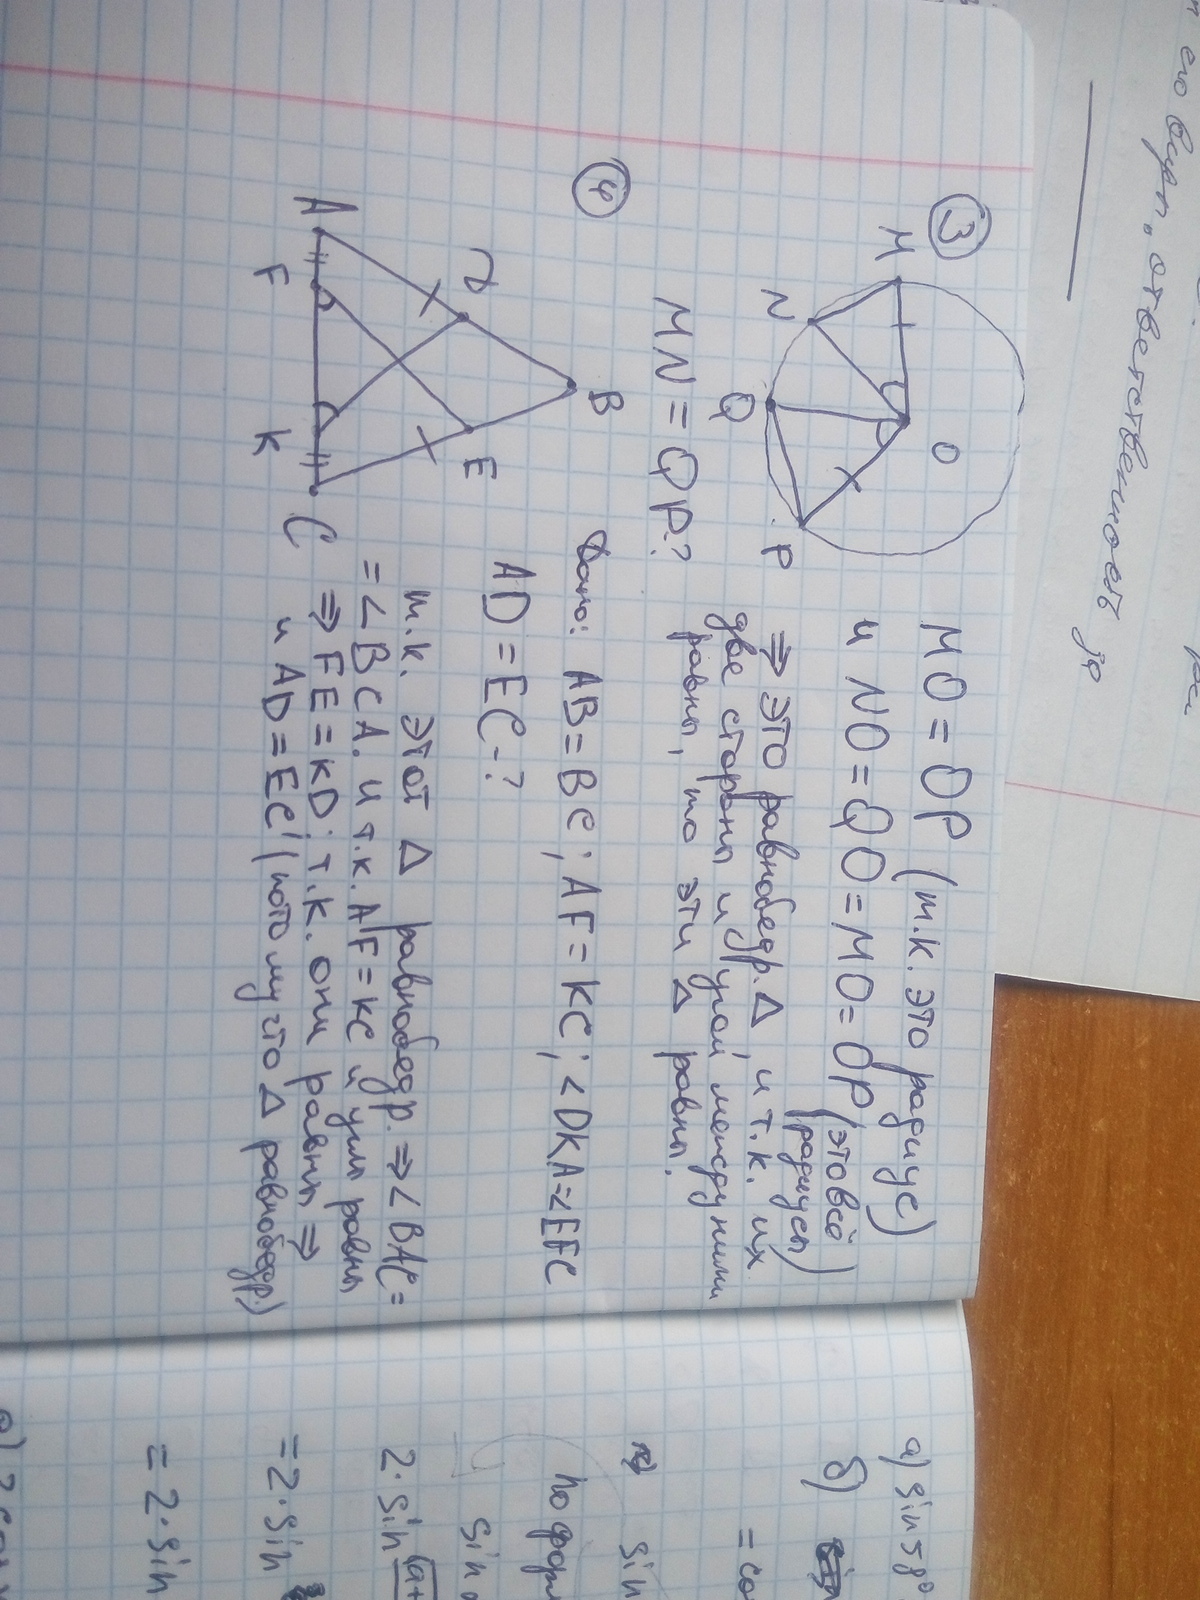 его вирт. ответственность
③
M
N
Q
P
O
MN = QP?
MO = OP (т.к. это радиус)
и NO = QO = MO = OP (это всё
радиусы)
⇒ это равнобедр. Δ, и т.к. их
две стороны и угол между ними
равны, то эти Δ равны.
④
A
D
B
E
F
K
C
Дано: AB = BC; AF = KC; <DKA = <EFC
AD = EC-?
т.к. этот Δ равнобедр. ⇒ <BAC =
= <BCA. и т.к. AF = KC и углы равны
⇒ FE = KD; т.к. они равны ⇒
и AD = EC (потому что Δ равнобедр.)
а) sin 58°
б)
= co
sin
по форм
sin
2·sin (a+
= 2·sin
= 2·sin